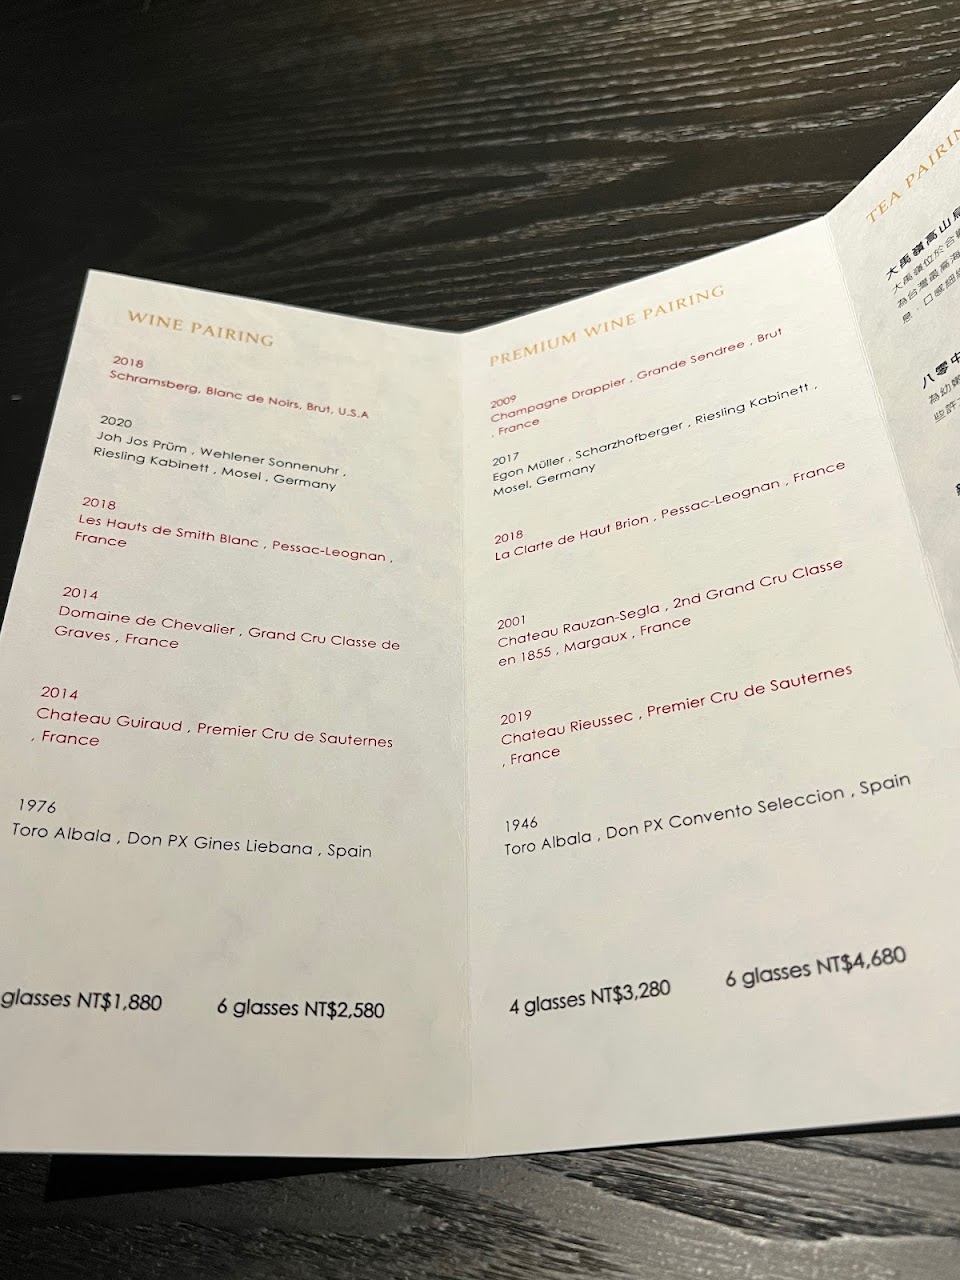 WINE PAIRING
2018
Schramsberg, Blanc de Noirs, Brut, U.S.A
2020
Joh Jos Prüm , Wehlener Sonnenuhr ,
Riesling Kabinett , Mosel , Germany
2018
Les Hauts de Smith Blanc , Pessac-Leognan ,
France
2014
Domaine de Chevalier , Grand Cru Classe de
Graves , France
2014
Chateau Guiraud , Premier Cru de Sauternes
, France
1976
Toro Albala , Don PX Gines Liebana , Spain
glasses NT$1,880
6 glasses NT$2,580
PREMIUM WINE PAIRING
2009
Champagne Drappier , Grande Sendree , Brut
, France
2017
Egon Müller , Scharzhofberger , Riesling Kabinett ,
Mosel, Germany
2018
La Clarte de Haut Brion , Pessac-Leognan , France
2001
Chateau Rauzan-Segla , 2nd Grand Cru Classe
en 1855 , Margaux , France
2019
Chateau Rieussec , Premier Cru de Sauternes
, France
1946
Toro Albala , Don PX Convento Seleccion , Spain
4 glasses NT$3,280
6 glasses NT$4,680
TEA PAIRIN
大禹嶺高山
大禹嶺位於台
為台灣最高海
息，口感細
八零中
為幼
些許